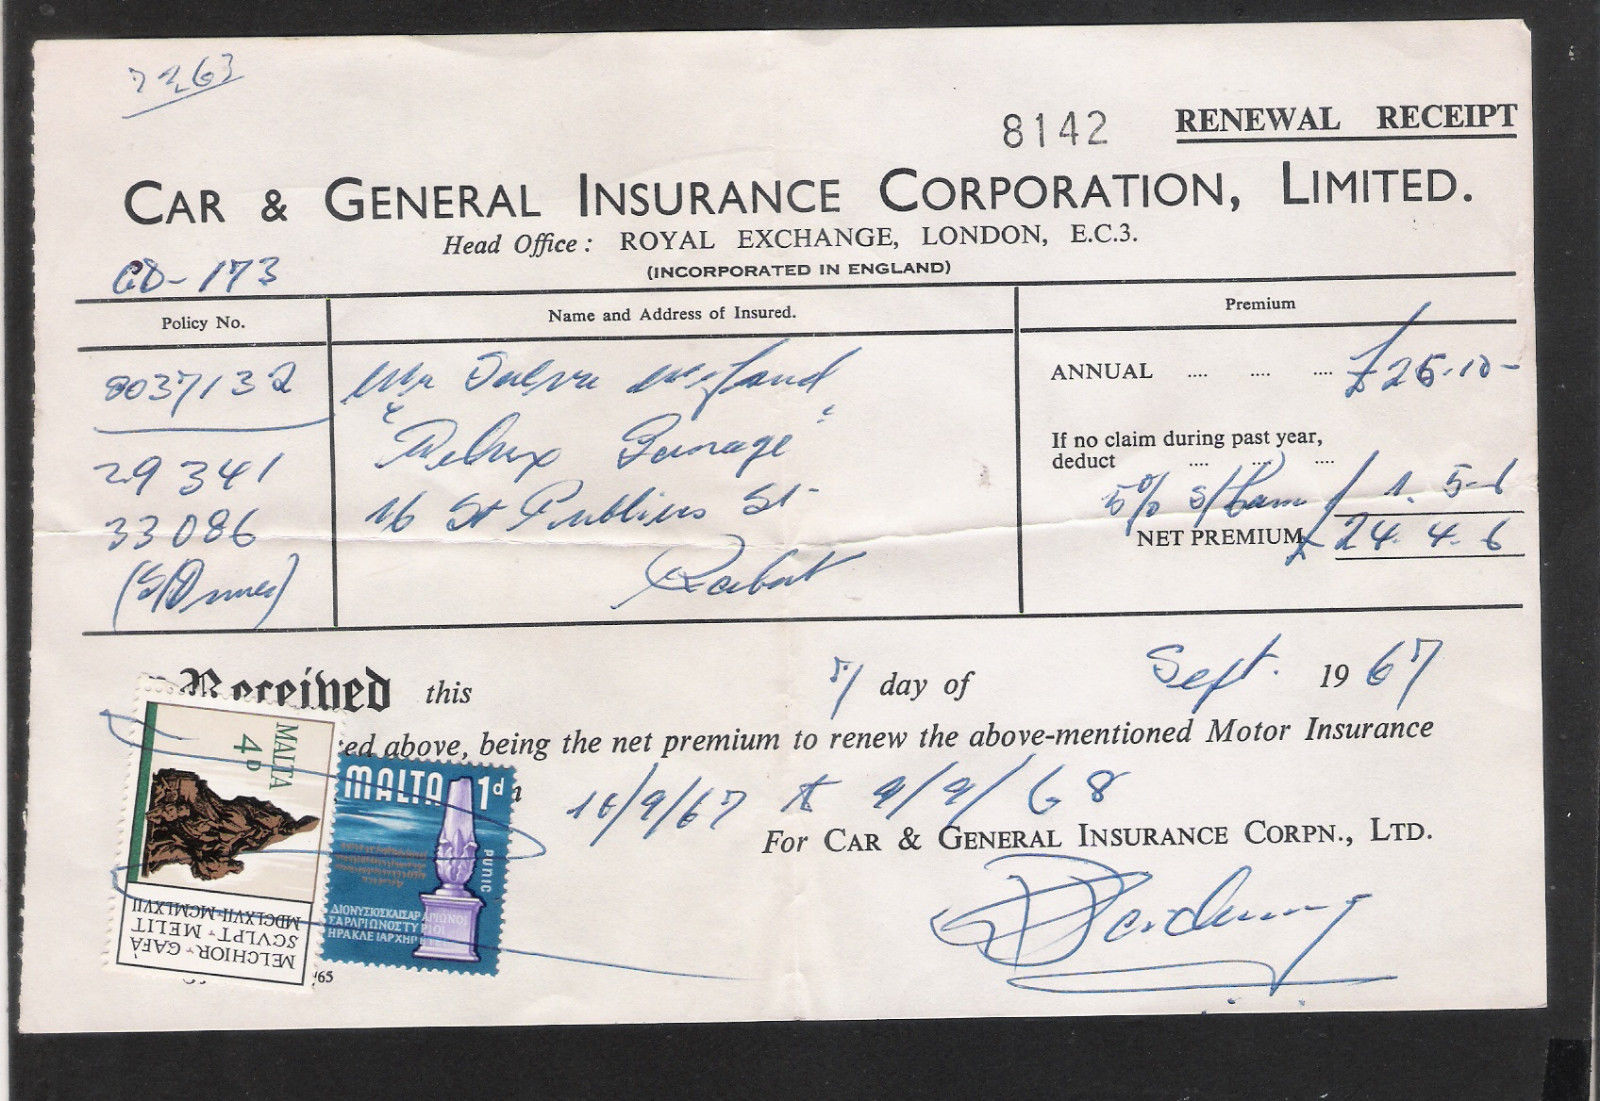 7263
8142 RENEWAL RECEIPT
CAR & GENERAL INSURANCE CORPORATION, LIMITED.
Head Office: ROYAL EXCHANGE, LONDON, E.C.3.
(INCORPORATED IN ENGLAND)
CD-173
Policy No.
Name and Address of Insured.
Premium
8037132
29341
33086
Mr
"Delux Garage"
16 St Publius St.
Rabat
ANNUAL .... .... .... £25.10-
If no claim during past year,
deduct .... .... ....
5% 1. 5-6
NET PREMIUM £24. 4. 6
Received this 7/ day of Sept. 1967
ed above, being the net premium to renew the above-mentioned Motor Insurance
10/9/67 to 9/9/68
For CAR & GENERAL INSURANCE CORPN., LTD.
MALTA
4D
MELCHIOR·GAFÀ
SCVLPT·MELIT
MDCLXVII-MCMLXVII
MALTA 1d
PUNIC
ΔΙΟΝΥΣΙΟΣΚΑΙΣΑΡΑΠΙΩΝΟΙ
ΣΑΡΑΠΙΩΝΟΣΤΥΡΙΟΙ
ΗΡΑΚΛΕΙΑΡΧΗΓΕΤΕΙ
/65